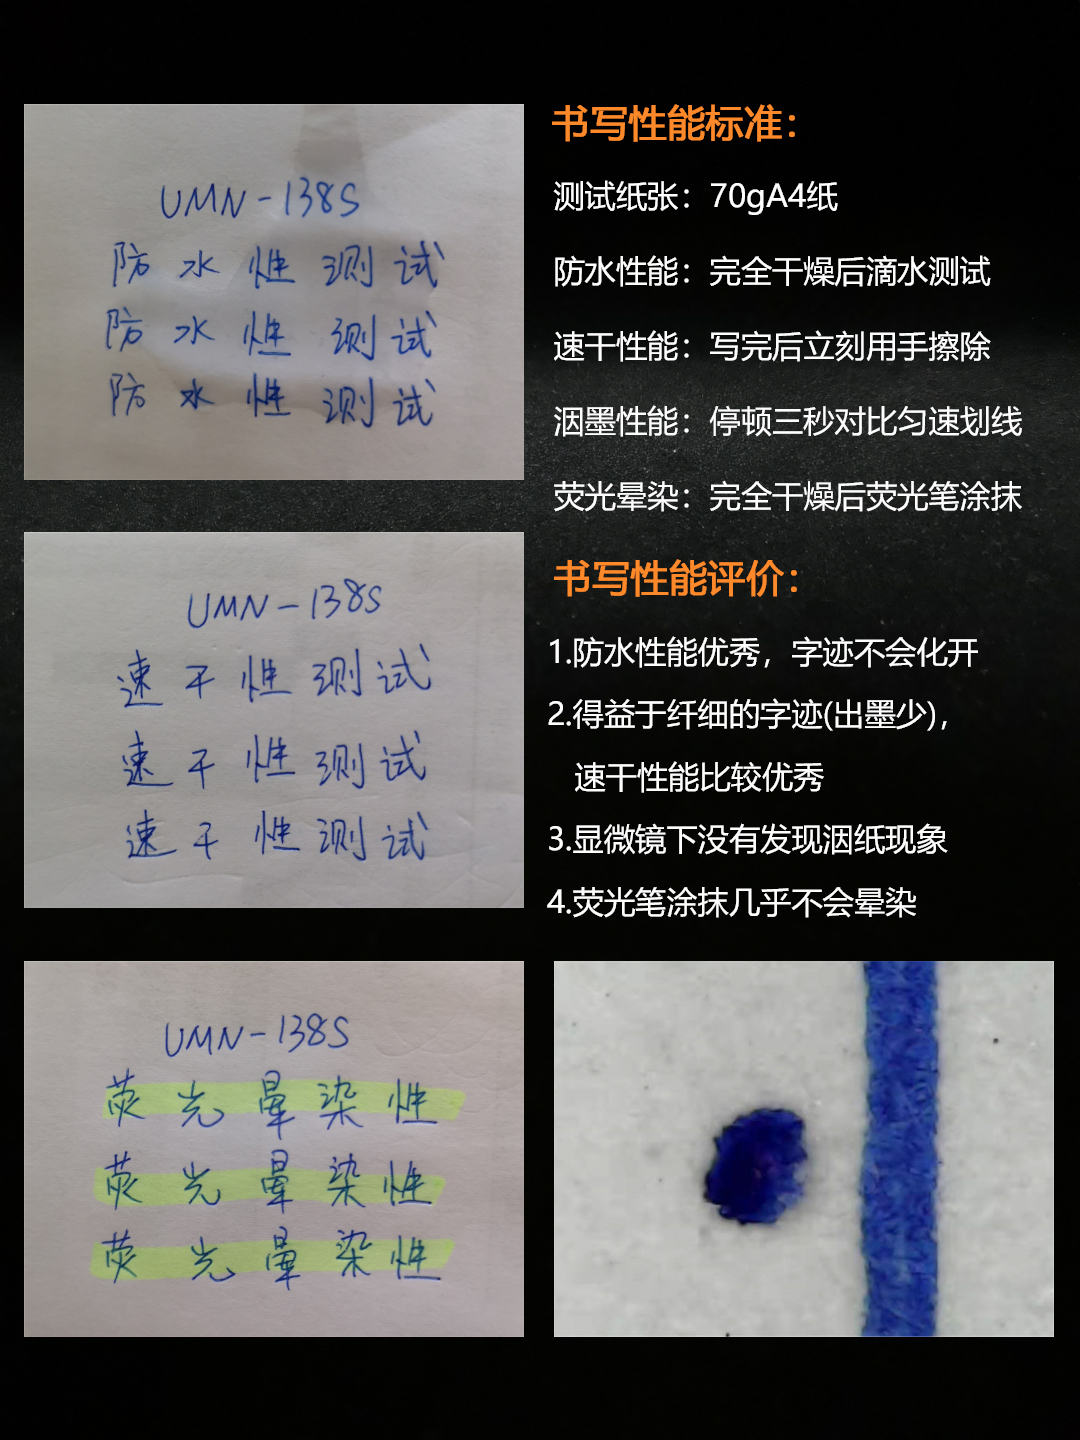 UMN-138S
防水性测试
防水性测试
防水性测试
书写性能标准：
测试纸张：70gA4纸
防水性能：完全干燥后滴水测试
速干性能：写完后立刻用手擦除
洇墨性能：停顿三秒对比匀速划线
荧光晕染：完全干燥后荧光笔涂抹
UMN-138S
速干性测试
速干性测试
速干性测试
书写性能评价：
1.防水性能优秀，字迹不会化开
2.得益于纤细的字迹(出墨少)，
速干性能比较优秀
3.显微镜下没有发现洇纸现象
4.荧光笔涂抹几乎不会晕染
UMN-138S
荧光晕染性
荧光晕染性
荧光晕染性